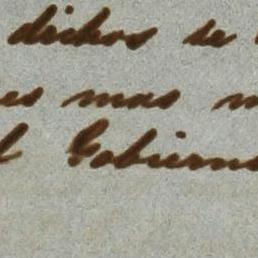 dichos de
es mas
l Gobierno